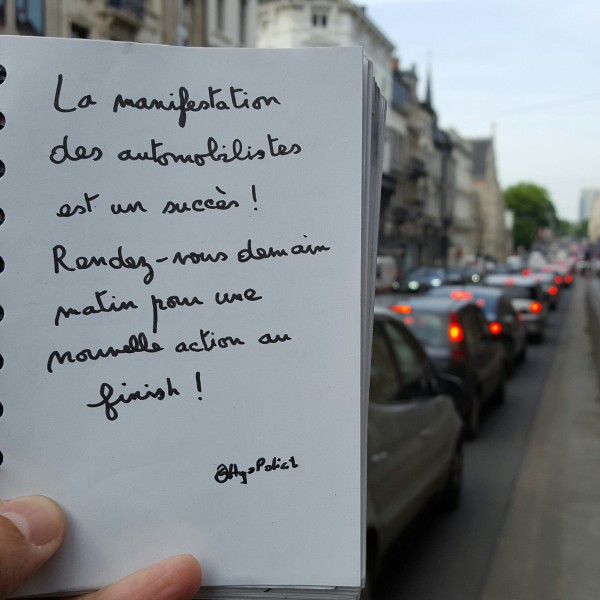 La manifestation
des automobilistes
est un succès !
Rendez-vous demain
matin pour une
nouvelle action au
finish !